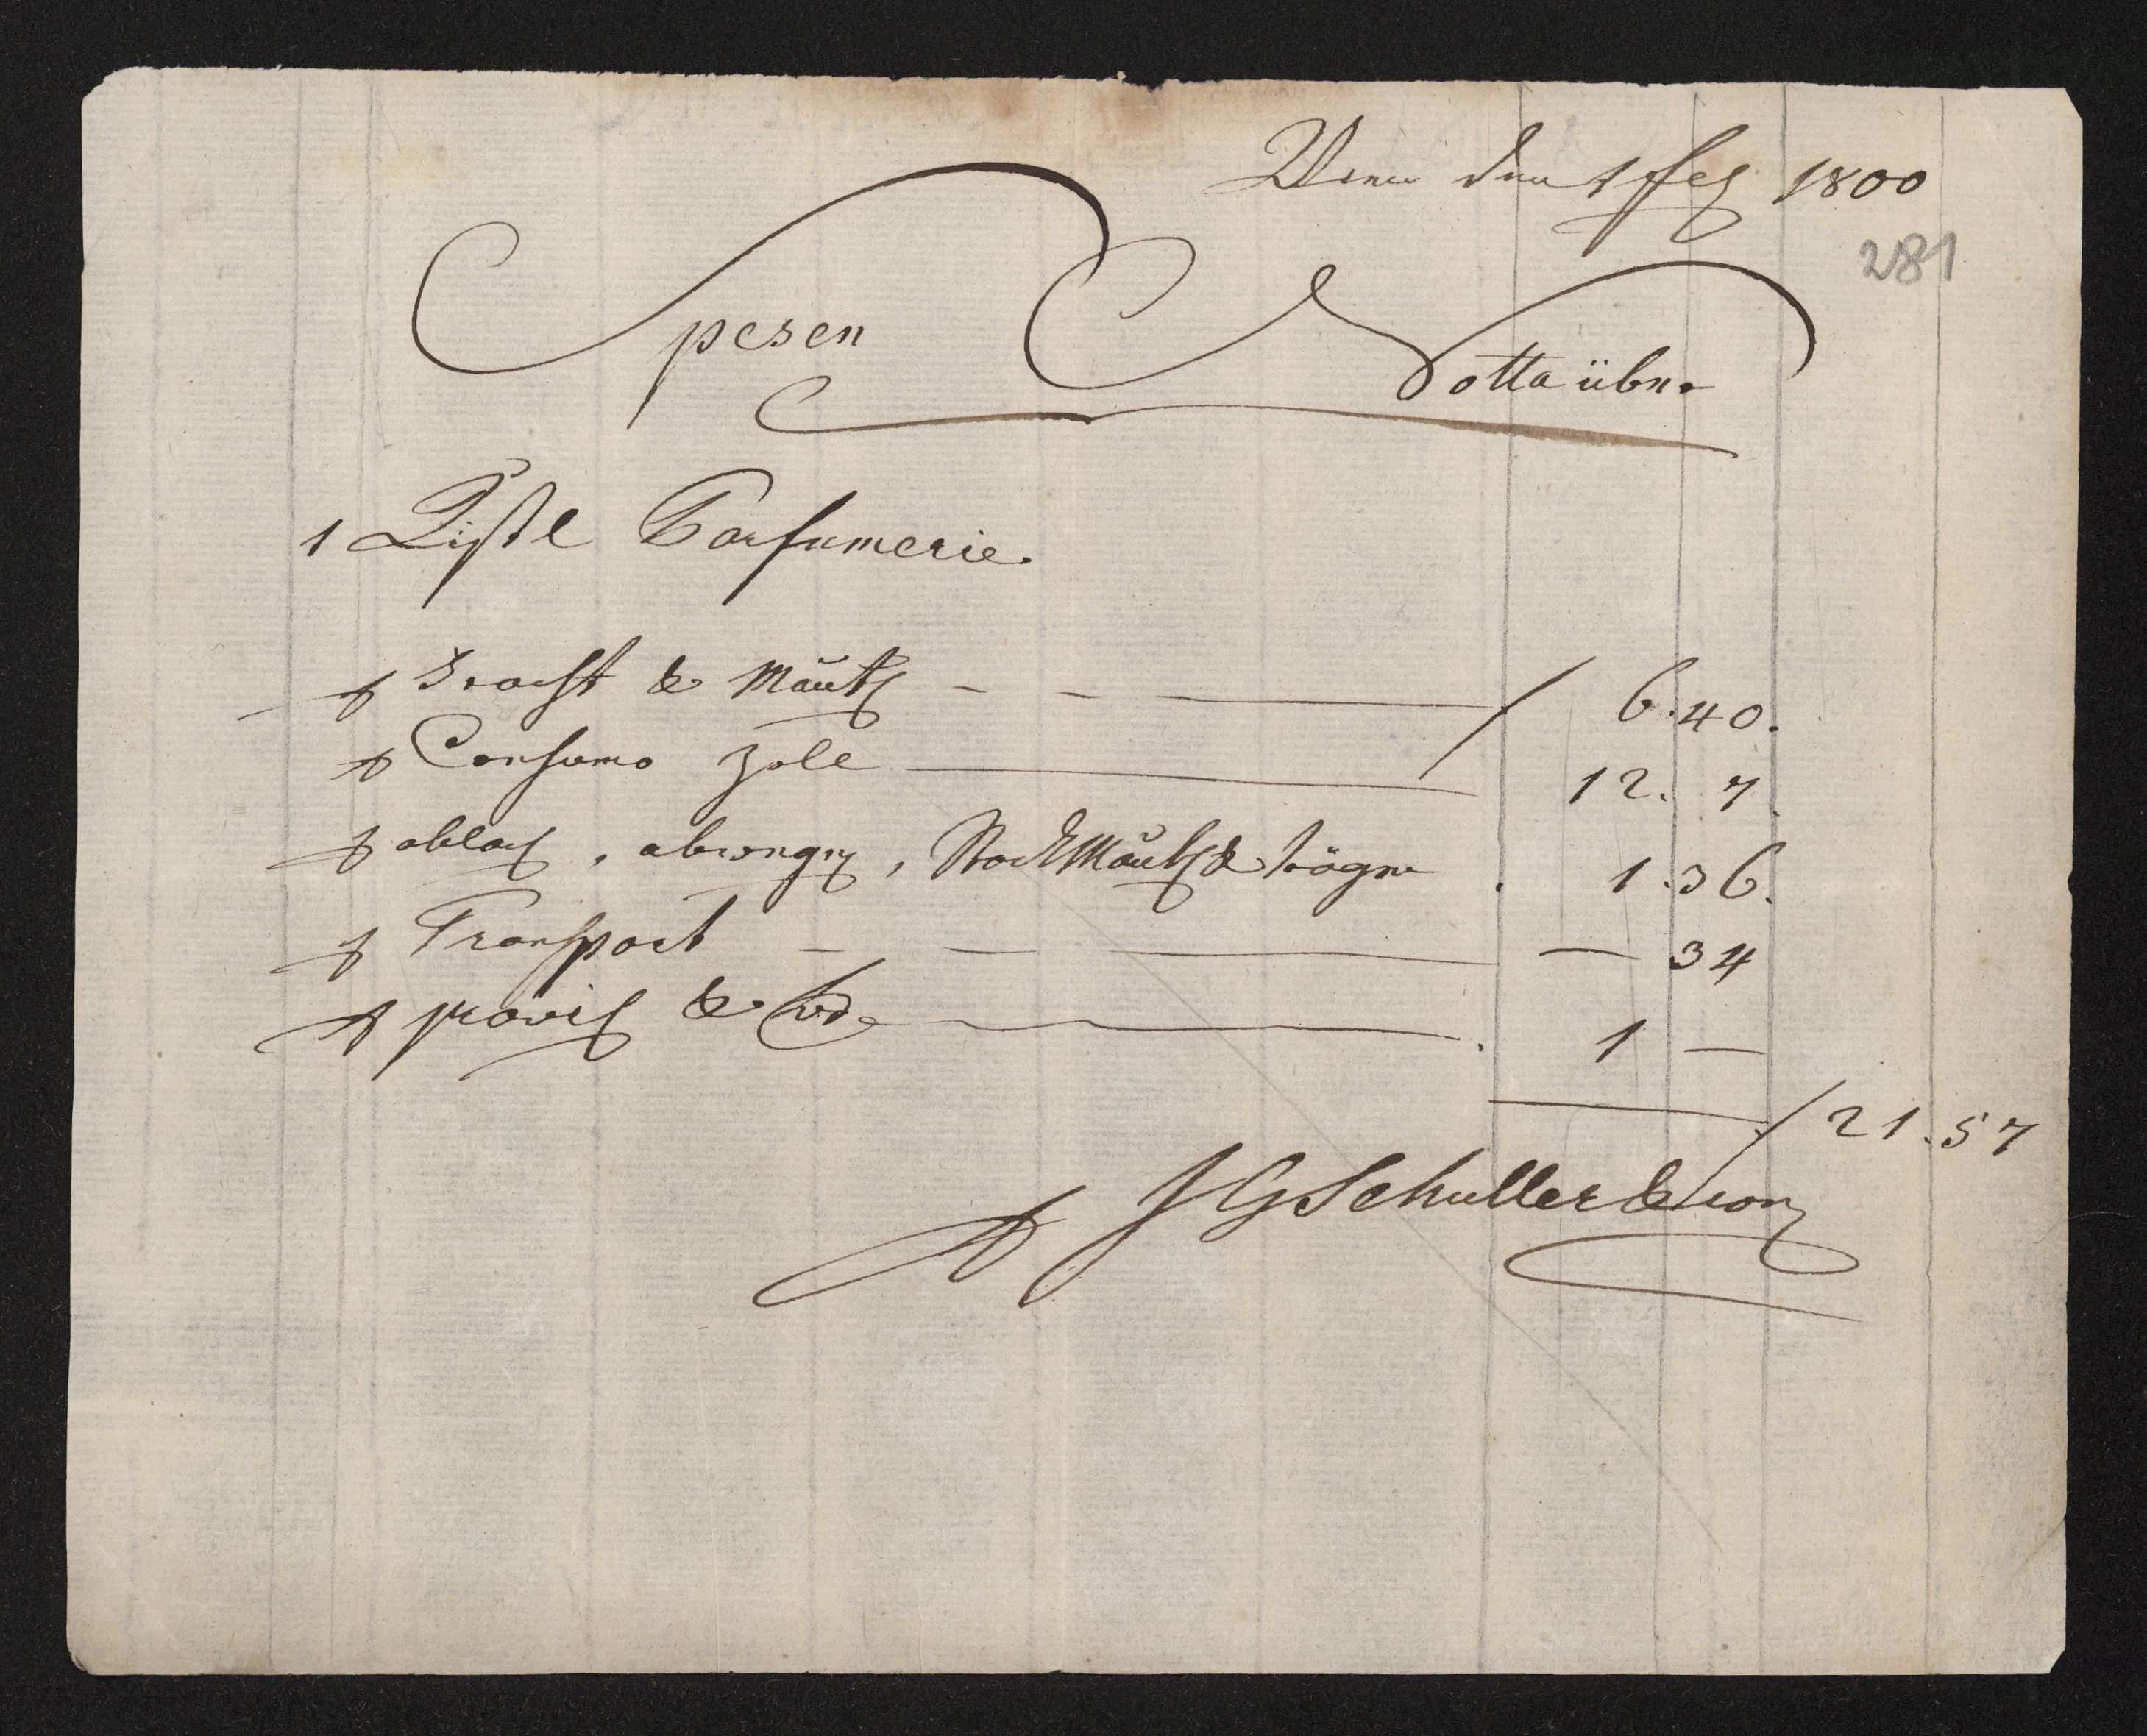 Wien den 1 feb 1800
281
Spesen Notta über
1 Kistl Parfumerie
p Fracht & Mauth — f 6.40.
p Consumo Zoll — 12. 7.
p ablad, , Stadt Mauth & träger . 1.36.
p Transport — — 34
p provis & — 1 —
f 21.57
p J G Schuller & Comp